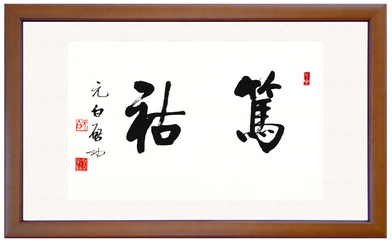 篤祜
元白启功